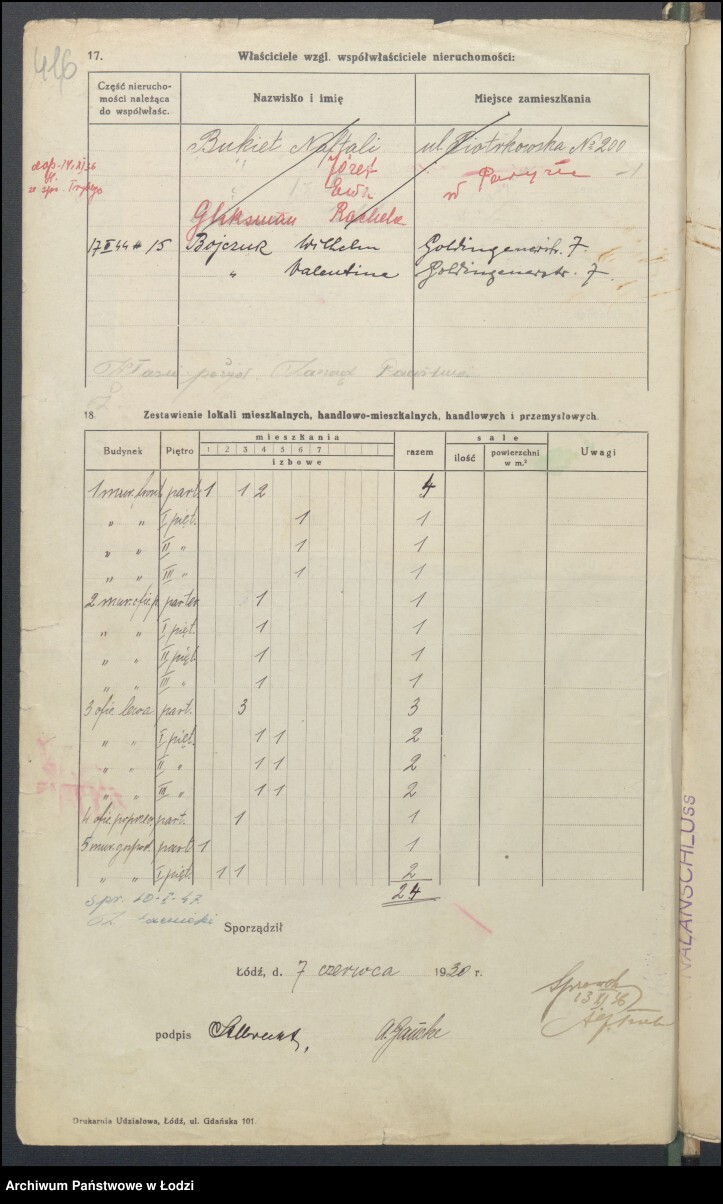 416
17. Właściciele wzgl. współwłaściciele nieruchomości:
Część nierucho-
mości należąca
do współwłaśc.
Nazwisko i imię
Miejsce zamieszkania
Bukiet Naftali ul. Piotrkowska № 200
dop. 14.XI 36 " Józef w Paryżu
Ewa
Gliksman Rachela
15 Bojczuk Wilhelm Goldingenerstr. 7
" Valentine Goldingenerstr. 7.
18. Zestawienie lokali mieszkalnych, handlowo-mieszkalnych, handlowych i przemysłowych.
Budynek Piętro mieszkania razem sale Uwagi
1 2 3 4 5 6 7 ilość powierzchni
izbowe w m.²
1 mur. front. part. 1 1 2 4
" " I pięt. 1 1
" " II " 1 1
" " III " 1 1
2 mur. ofic. p. parter 1 1
" " I pięt. 1 1
" " II pięt 1 1
" " III " 1 1
3 ofic. lewa part. 3 3
" " I pięt. 1 1 2
" " II " 1 1 2
" " III " 1 1 2
4 ofic. poprzecz. part. 1 1
5 mur. gospod. part. 1 1
" " I pięt. 1 1 2
24
spr. 10-X-47
Sporządził
Łódź, d. 7 czerwca 1930 r.
13 XI 36
podpis
Drukarnia Udziałowa, Łódź, ul. Gdańska 101.
NALANSCHLUSS
Archiwum Państwowe w Łodzi